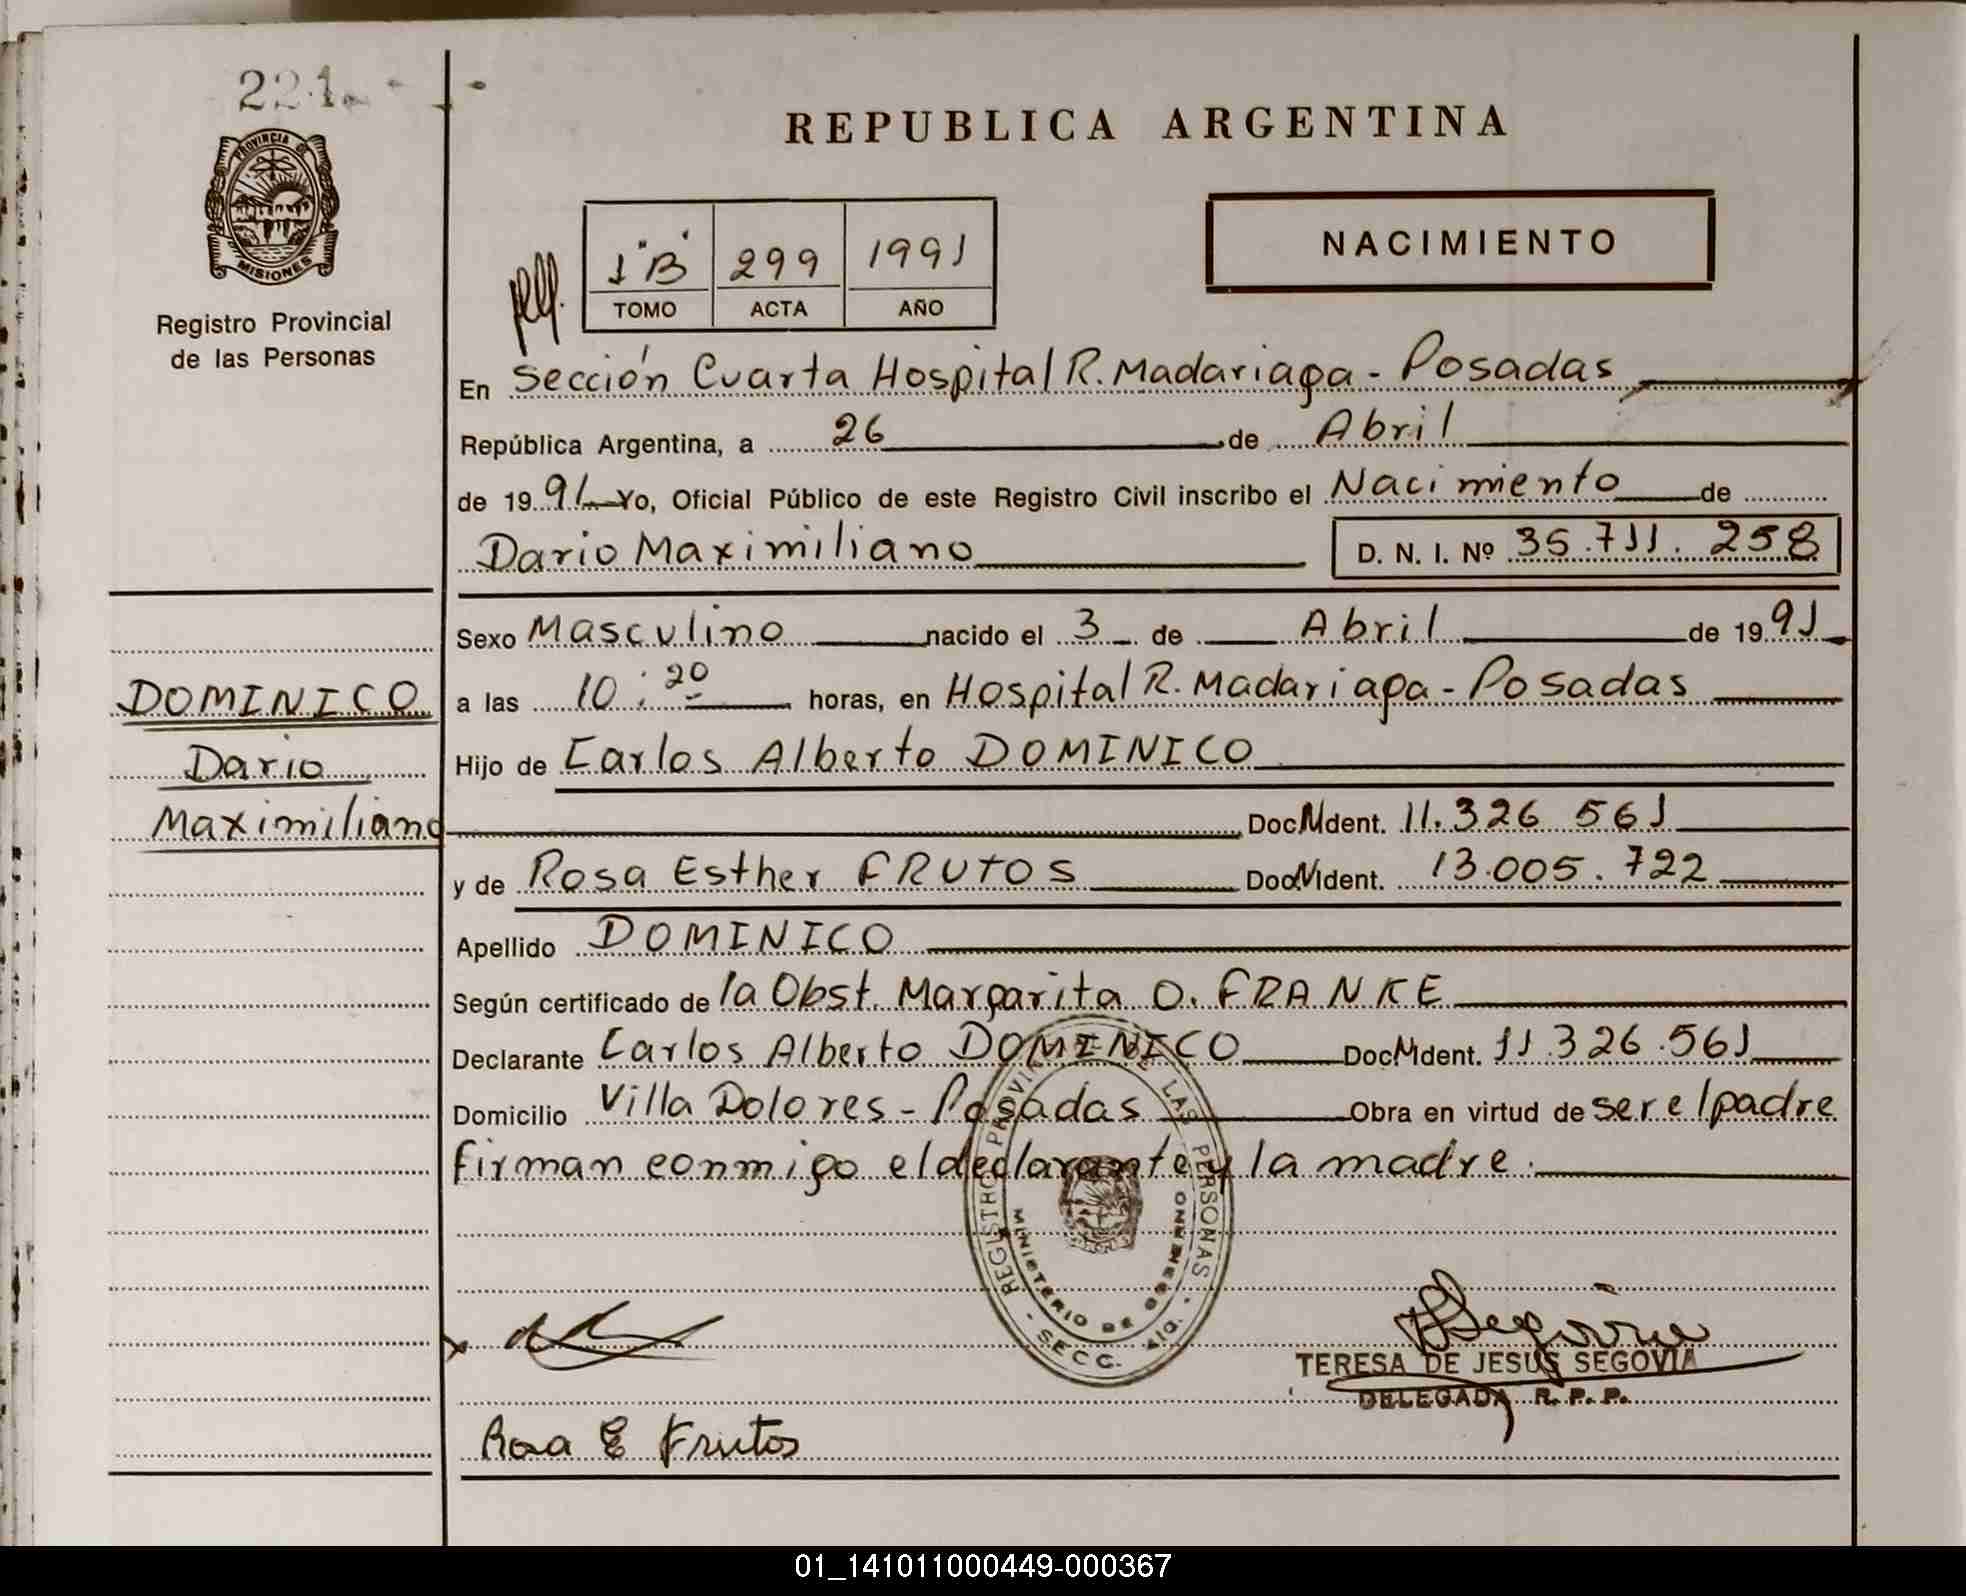 221
PROVINCIA DE
MISIONES
Registro Provincial
de las Personas
REPUBLICA ARGENTINA
1 "B" 299 1991
TOMO ACTA AÑO
NACIMIENTO
En Sección Cuarta Hospital R. Madariaga - Posadas
República Argentina, a 26 de Abril
de 1991 Yo, Oficial Público de este Registro Civil inscribo el Nacimiento de
Dario Maximiliano D. N. I. Nº 35.711.258
Sexo Masculino nacido el 3 de Abril de 1991
a las 10:20 horas, en Hospital R. Madariaga - Posadas
DOMINICO
Dario
Maximiliano
Hijo de Carlos Alberto DOMINICO
Doc. Ident. 11.326 561
y de Rosa Esther FRUTOS Doc. Ident. 13.005.722
Apellido DOMINICO
Según certificado de la Obst. Margarita O. FRANKE
Declarante Carlos Alberto DOMINICO Doc. Ident. 11.326.561
Domicilio Villa Dolores - Posadas Obra en virtud de ser el padre
firman conmigo el declarante y la madre.
REGISTRO PROVINCIAL DE LAS PERSONAS
MINISTERIO DE GOBIERNO
SECC. 4ta.
Segovia
TERESA DE JESUS SEGOVIA
DELEGADA R. P. P.
Rosa E Frutos
01_141011000449-000367